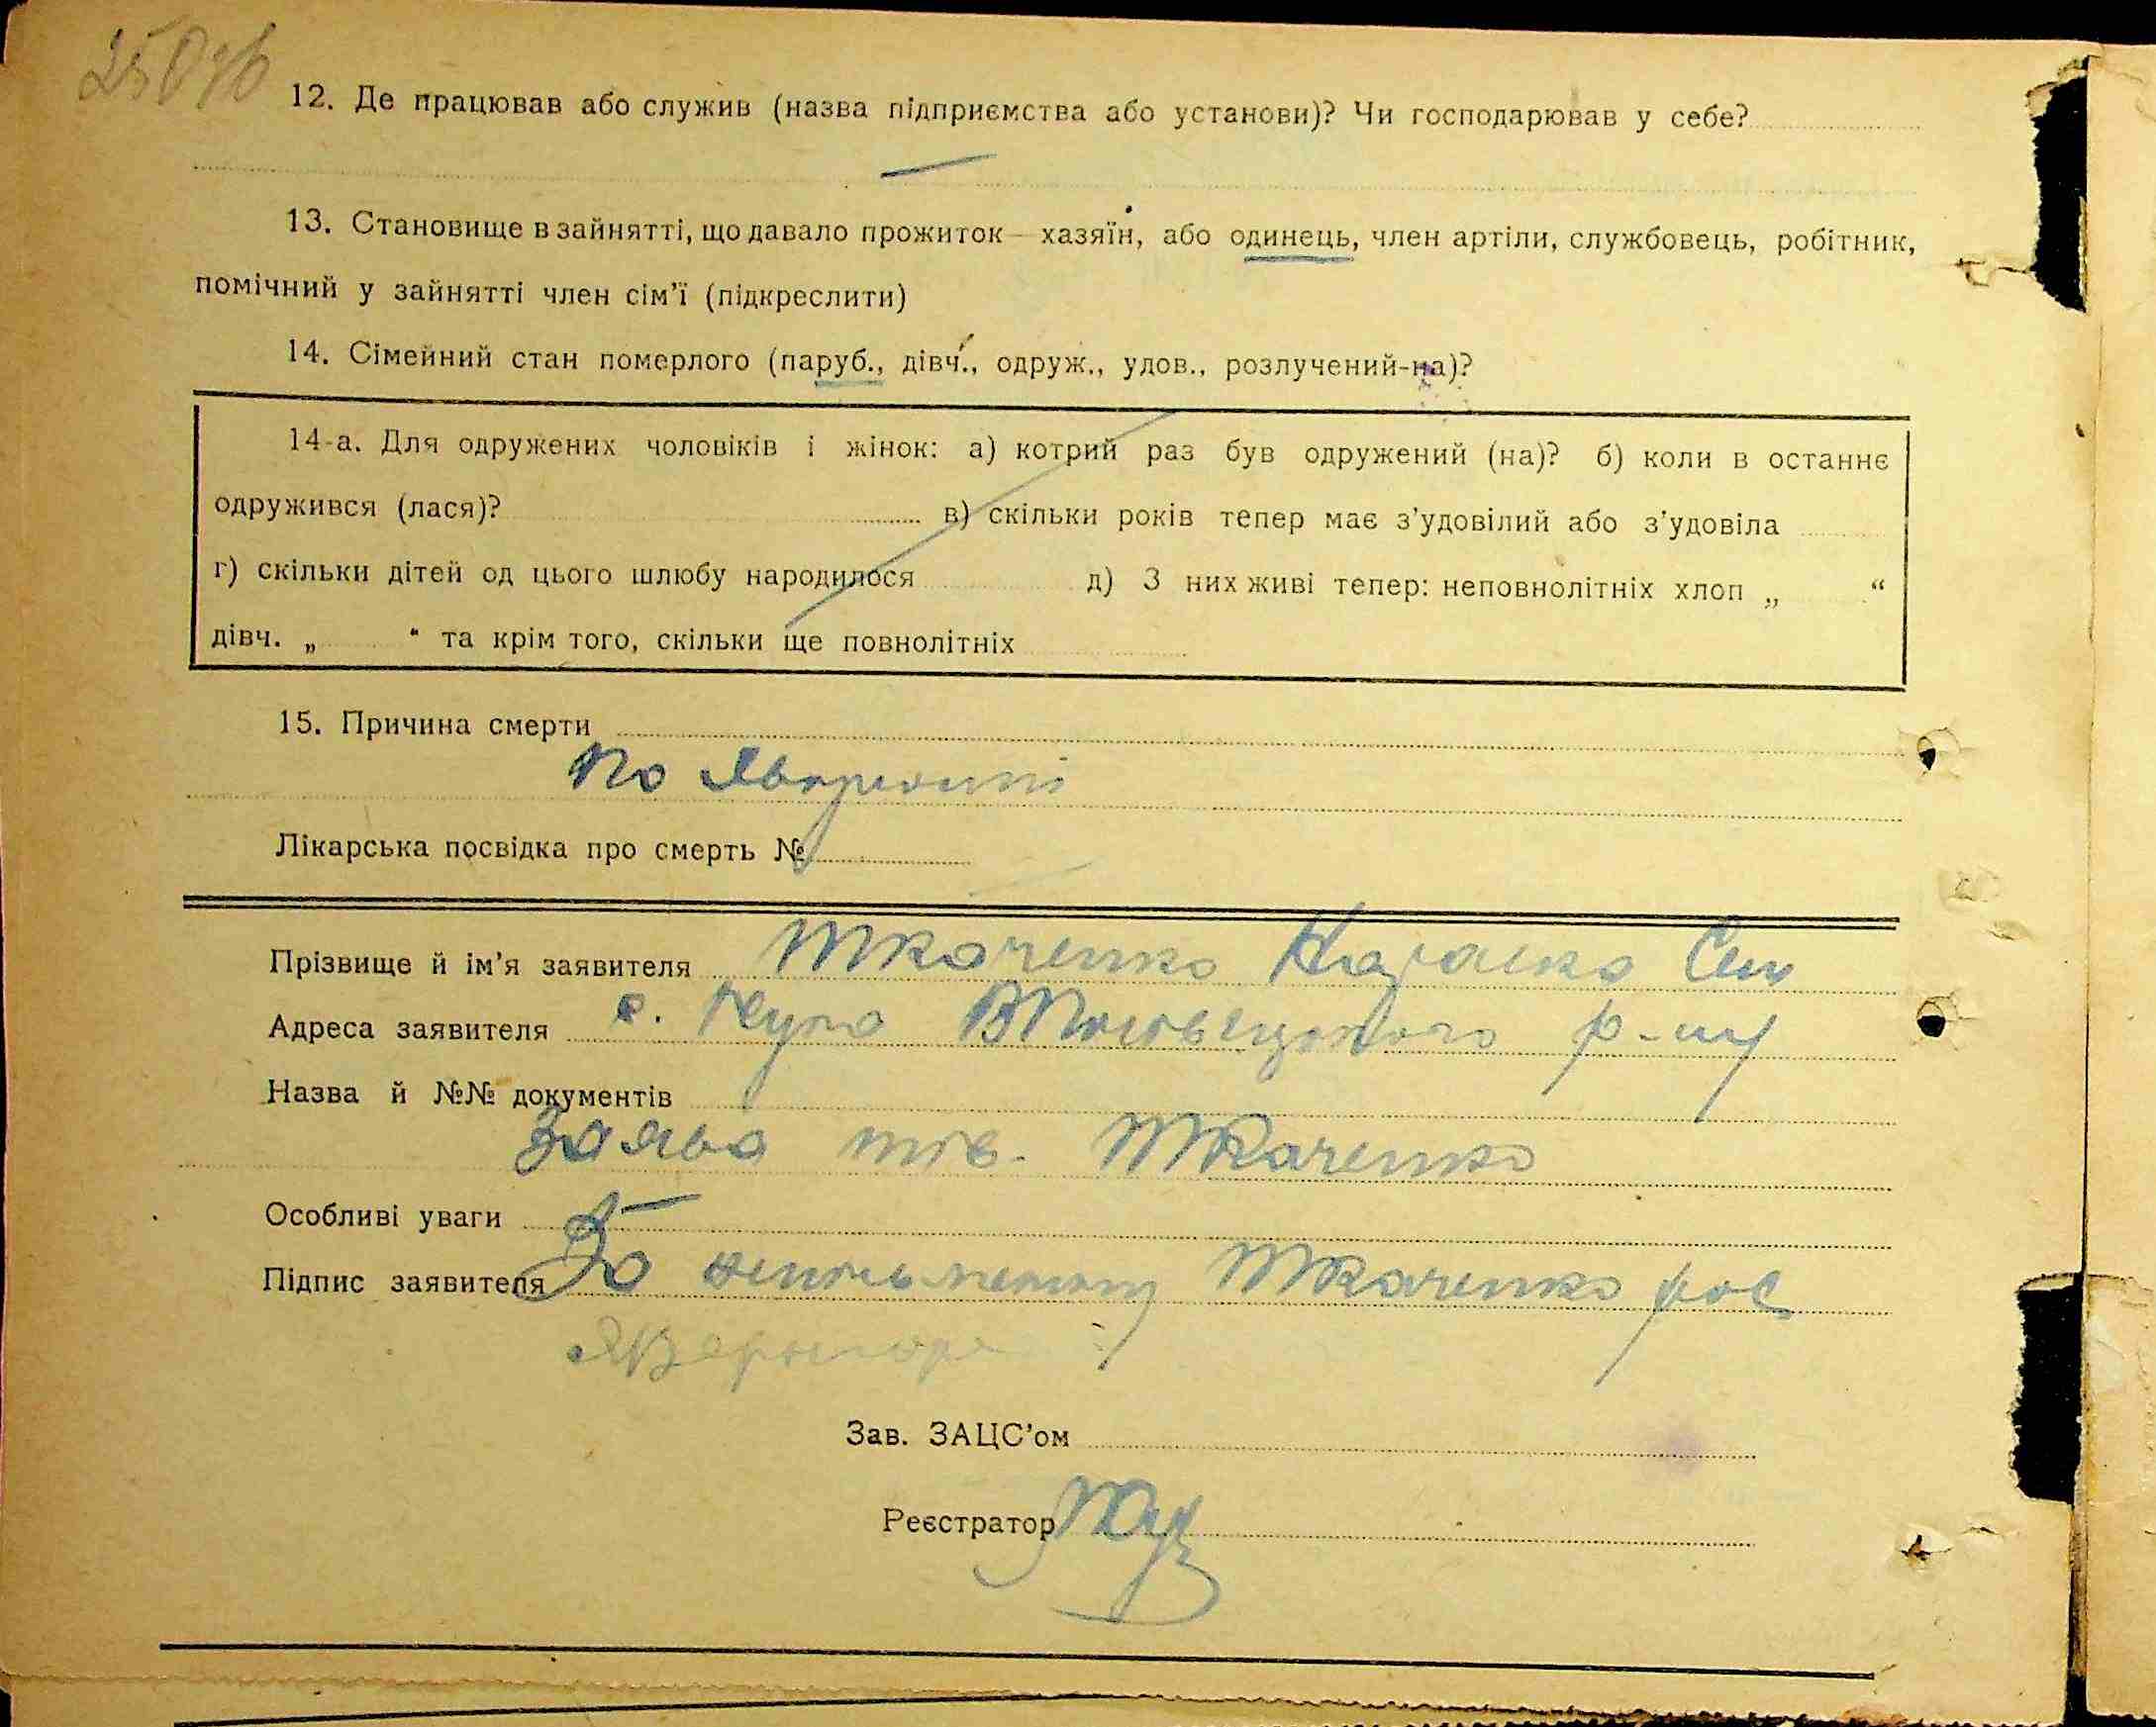 250зв
12. Де працював або служив (назва підприємства або установи)? Чи господарював у себе?
—
13. Становище в зайнятті, що давало прожиток – хазяїн, або одинець, член артіли, службовець, робітник,
помічний у зайнятті член сім’ї (підкреслити)
14. Сімейний стан померлого (паруб., дівч., одруж., удов., розлучений-на)?
14-а. Для одружених чоловіків і жінок: а) котрий раз був одружений (на)? б) коли в останнє
одружився (лася)? в) скільки років тепер має з’удовілий або з’удовіла
г) скільки дітей од цього шлюбу народилося д) З них живі тепер: неповнолітніх хлоп „ “
дівч. „ “ та крім того, скільки ще повнолітніх
15. Причина смерти
по
Лікарська посвідка про смерть №
Прізвище й ім’я заявителя Ткаченко
Адреса заявителя с. р-ну
Назва й №№ документів
Заява тов. Ткаченко
Особливі уваги —
Підпис заявителя За Ткаченко рос
Зав. ЗАЦС’ом
Реєстратор